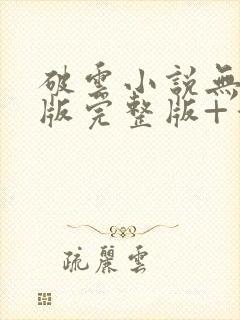 破雲小說無
版完整版+
疏麗雲